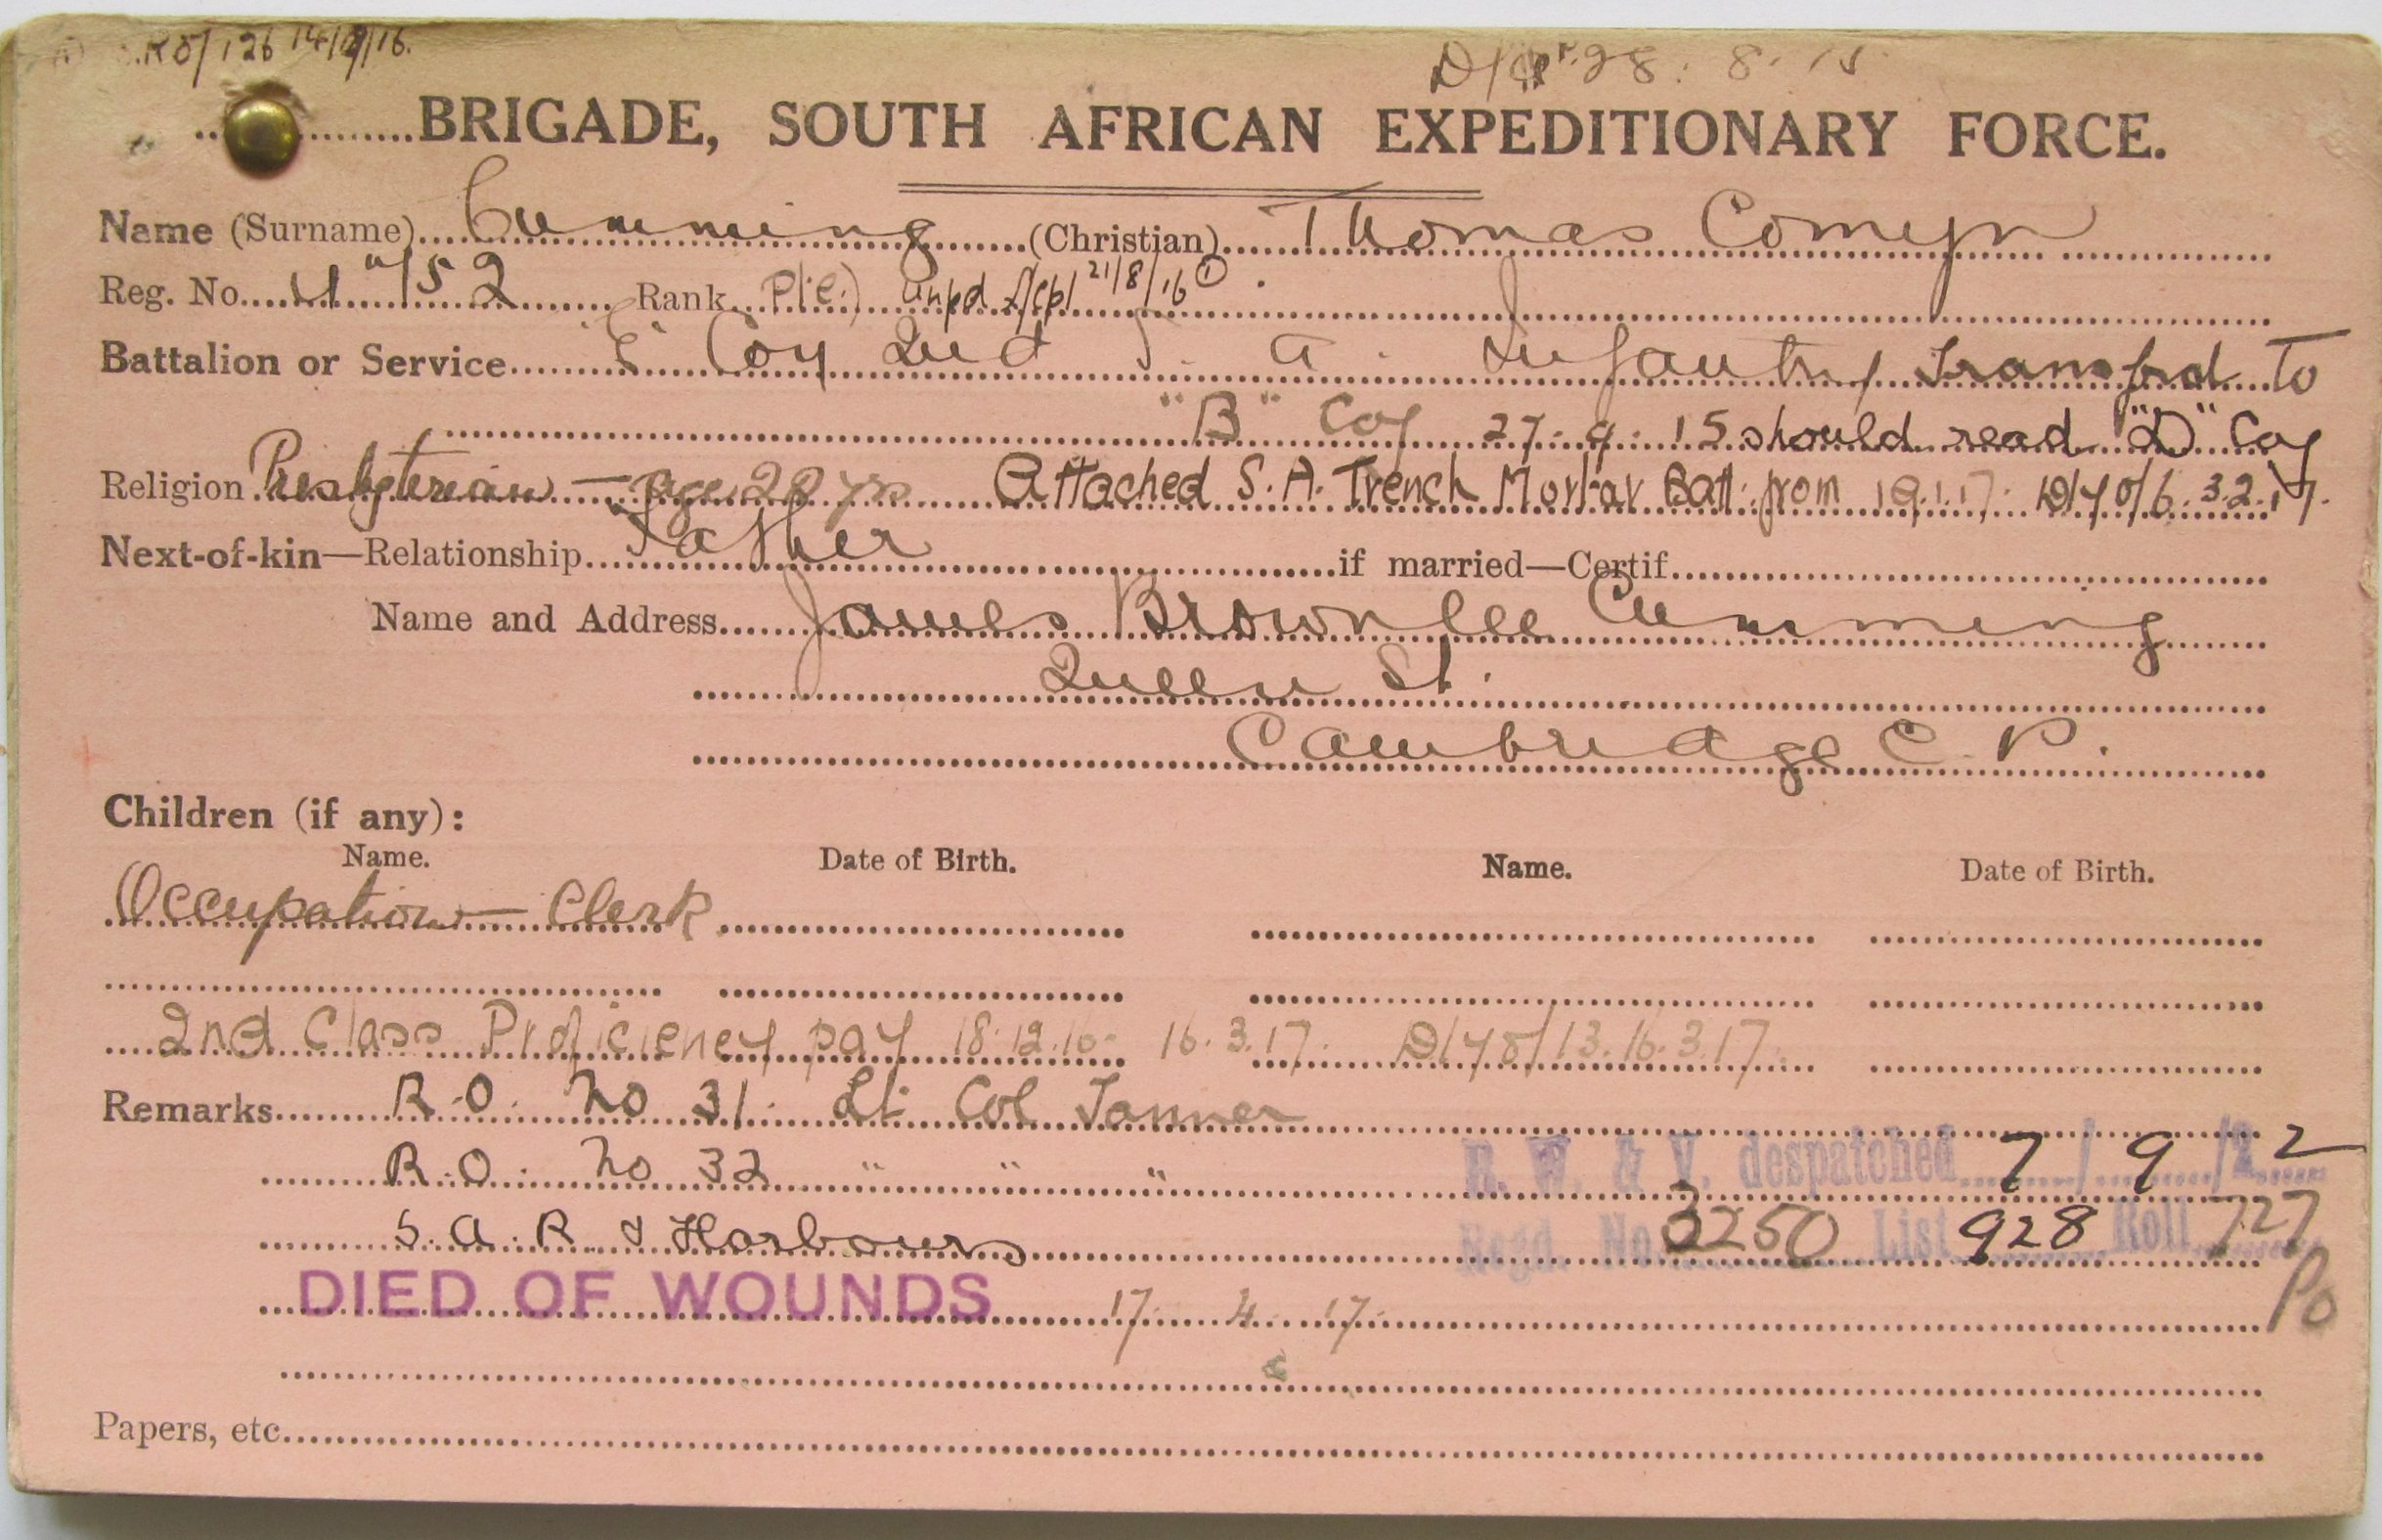 RO/126 14/8/16.
D/ 28. 8. 15
BRIGADE, SOUTH AFRICAN EXPEDITIONARY FORCE.
Name (Surname) Cumming (Christian) Thomas Comeyn
Reg. No. 52 Rank Pte. unpd L/Cpl 21/8/16 ①
Battalion or Service Coy 2nd S. A. Infantry Transfrd to
"B" Coy 27. 9. 15 should read "D" Coy
Religion Presbyterian — age 28 yrs Attached S.A. Trench Mortar Batt from 19.1.17. D/yo/6. 3.2.17.
Next-of-kin—Relationship Father if married—Certif.
Name and Address James Brownlee Cumming
Queen St.
Cambridge C. P.
Children (if any):
Name. Date of Birth. Name. Date of Birth.
Occupation — Clerk
2nd Class Proficiency pay 18.12.16 - 16.3.17. D/yo/13. 16.3.17.
Remarks R.O. No 31. Lt Col Tanner
R.O. No 32 " " " B. W. & V. despatched 7/9/22
S.A.R. & Harbours Regd. No. 3250 List 928 Roll 727
DIED OF WOUNDS 17. 4. 17. Po
Papers, etc.